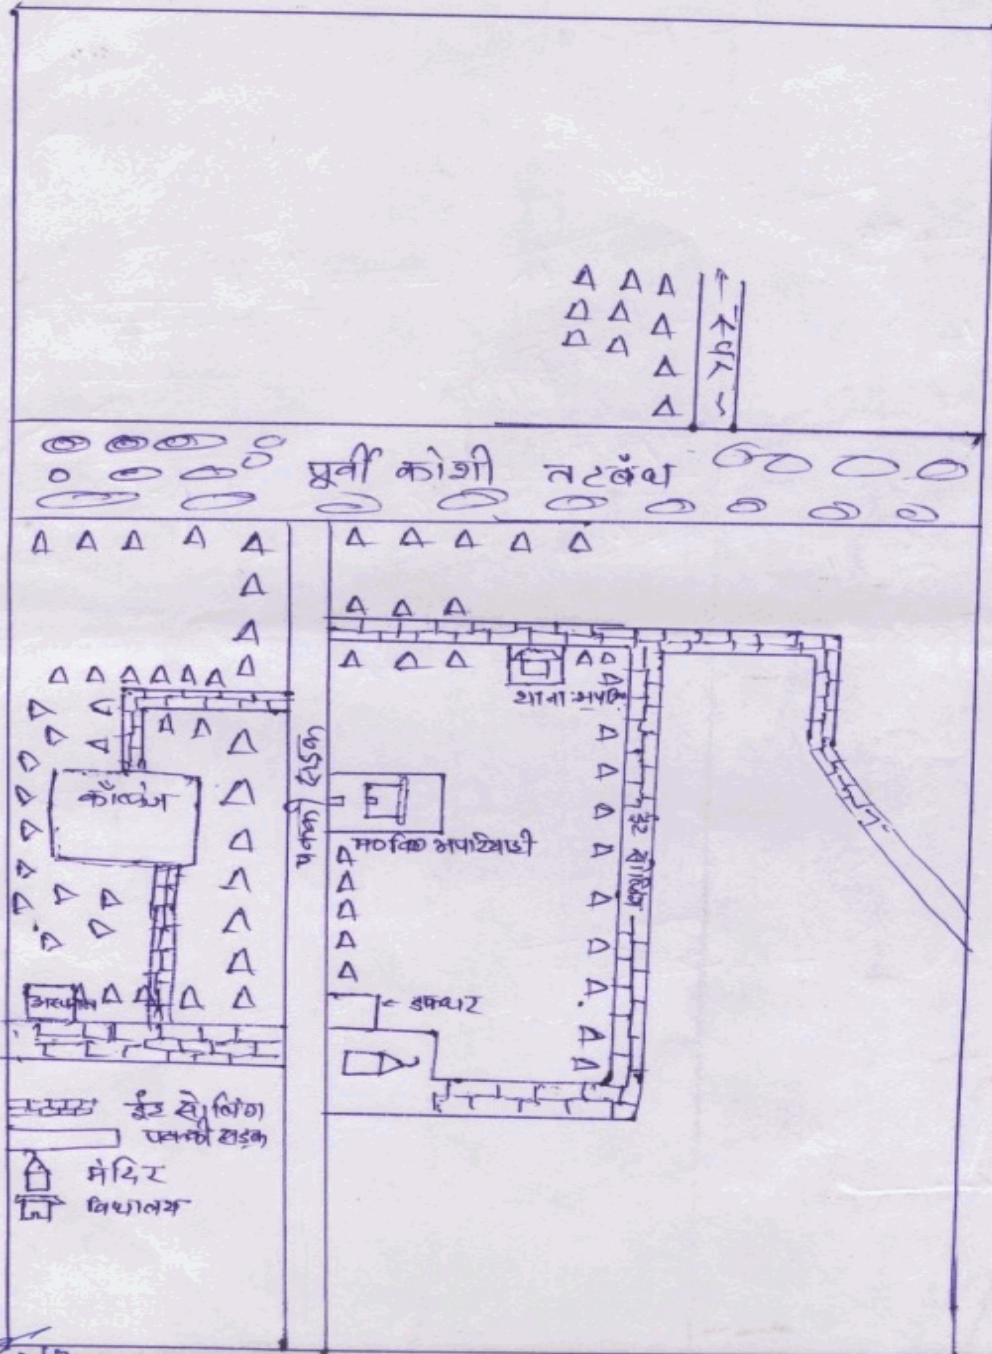 स्पर
पूर्वी कोशी तटबंध
थाना भपटि
पक्की सड़क
कॉलेज
म०वि० भपटियाही
ईट सोलिंग
अस्पताल
डाकघर
ईंट सोलिंग
पक्की सड़क
मंदिर
विधालय